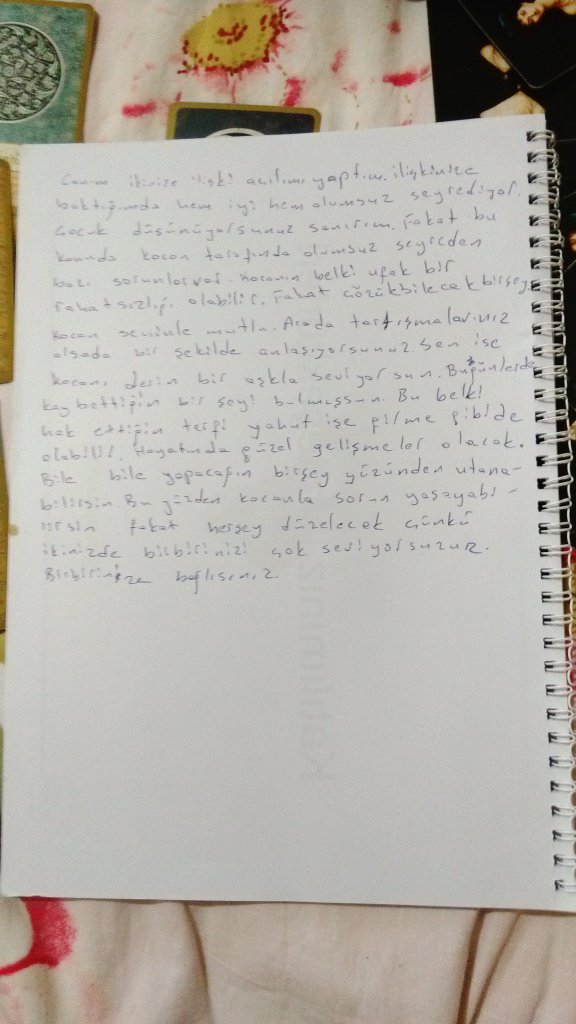 Canım ikinize ilişki açılımı yaptım. ilişkinize
baktığımda hem iyi hem olumsuz seyrediyor.
Çocuk düşünüyorsunuz sanırım. Fakat bu
konuda kocan tarafında olumsuz seyreden
bazı sorunlar var. kocanın belki ufak bir
rahatsızlığı olabilir. Fakat çözükbilecek birşey
kocan seninle mutlu. Arada tartışmalarınız
olsada bir şekilde anlaşıyorsunuz. Sen ise
kocanı derin bir aşkla seviyorsun. Bugünlerde
kaybettiğin bir şeyi bulmuşsun. Bu belki
hak ettiğin terfi yahut işe girme gibide
olabilir. Hayatında güzel gelişmeler olacak.
Bile bile yapacağın birşey yüzünden utana-
bilirsin. Bu yüzden kocanla sorun yaşayabi-
lirsin fakat herşey düzelecek çünkü
ikinizde birbirinizi çok seviyorsunuz.
Birbirinize bağlısınız.